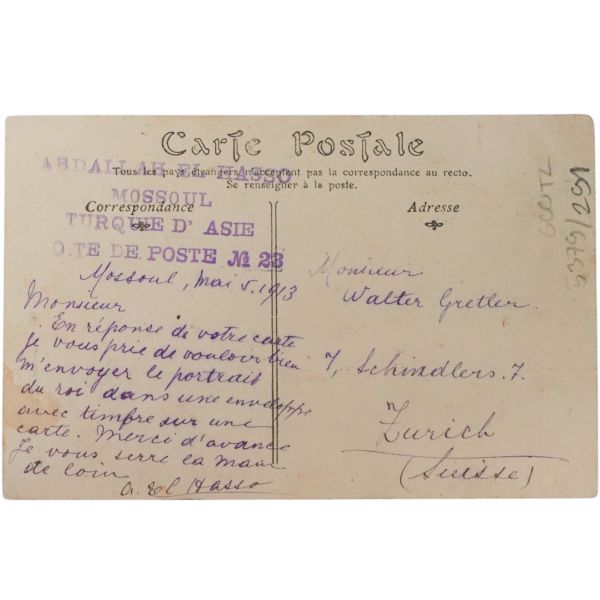 Carte Postale
Tous les pays étrangers n'acceptent pas la correspondance au recto.
Se renseigner à la poste.
ABDALLAH EL-HASSO
MOSSOUL
TURQUIE D'ASIE
OITE DE POSTE № 23
Correspondance
Mossoul, Mai 5. 1913
Monsieur
En réponse de votre carte
je vous prie de vouloir bien
m'envoyer le portrait
du roi dans une enveloppe
avec timbre sur une
carte. Merci d'avance
Je vous serre la main
de loin
A. El Hasso
Adresse
Monsieur
Walter Gretler
7, Schindlers. 7.
Zurich
(Suisse)